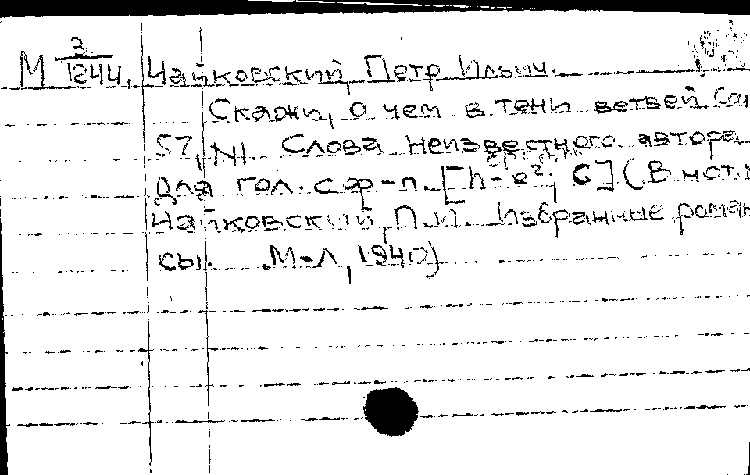 М 3/1244. Чайковский, Петр Ильич.
Скажи, о чем в тени ветвей. Соч
57, N1. Слова неизвестного автора
для гол. с ф-п. [h-e²; C] (В нот.:
Чайковский, П.И. Избранные роман
сы. М-Л, 1940)